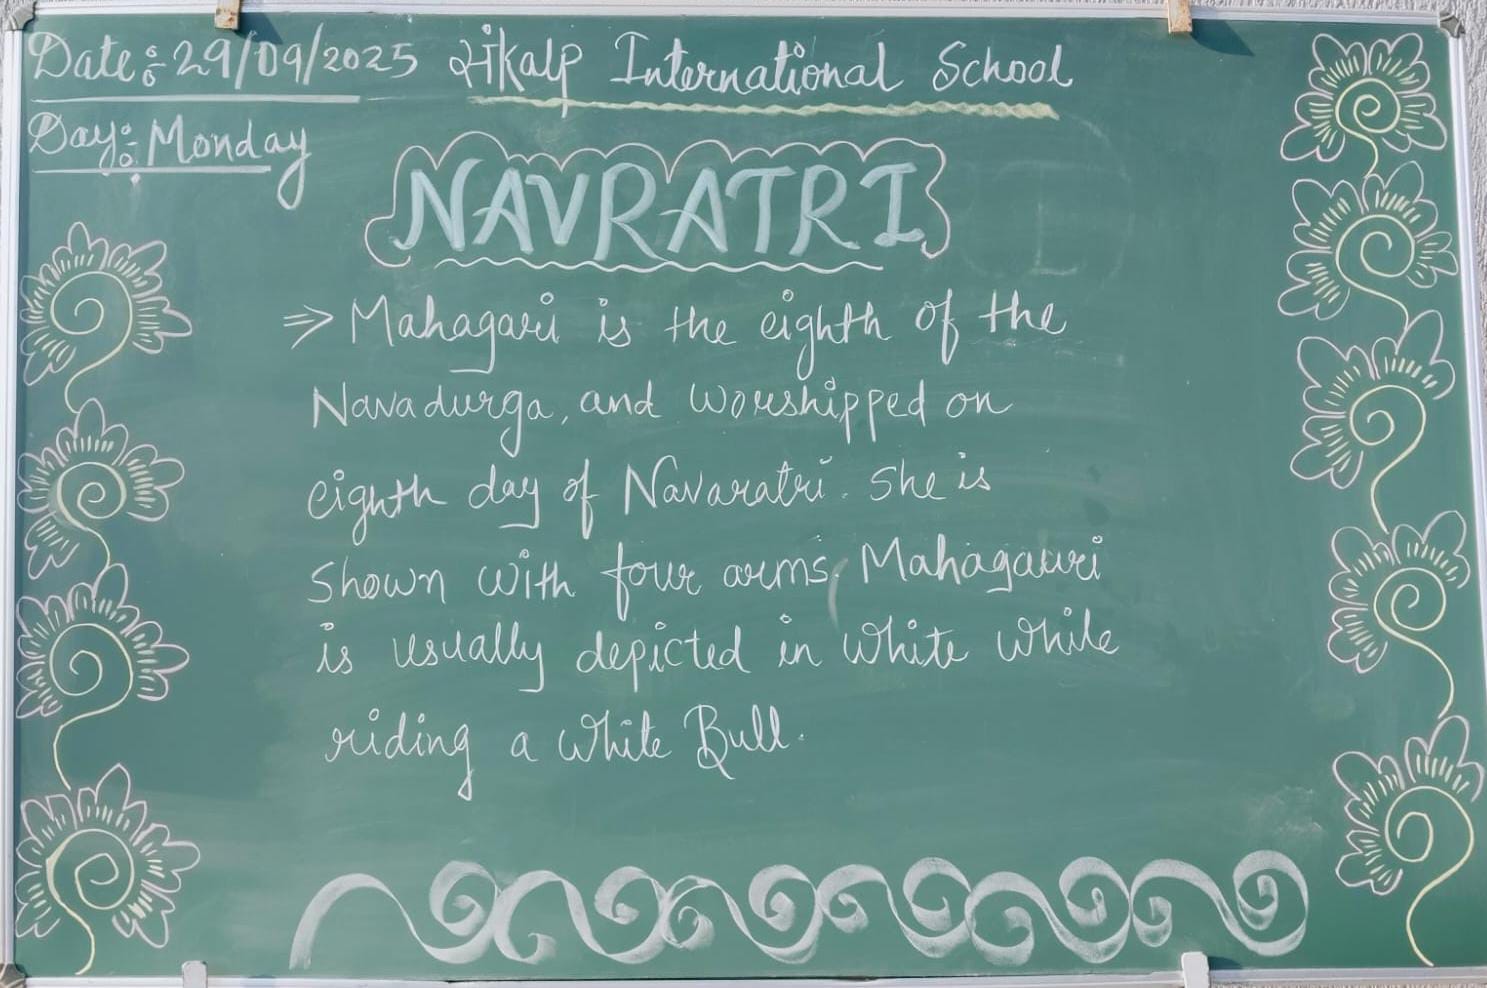 Date: 29/09/2025 संkalp International School
Day: Monday
NAVRATRI
⇒ Mahagauri is the eighth of the
Navadurga, and worshipped on
eighth day of Navaratri. She is
shown with four arms. Mahagauri
is usually depicted in white while
riding a white Bull.